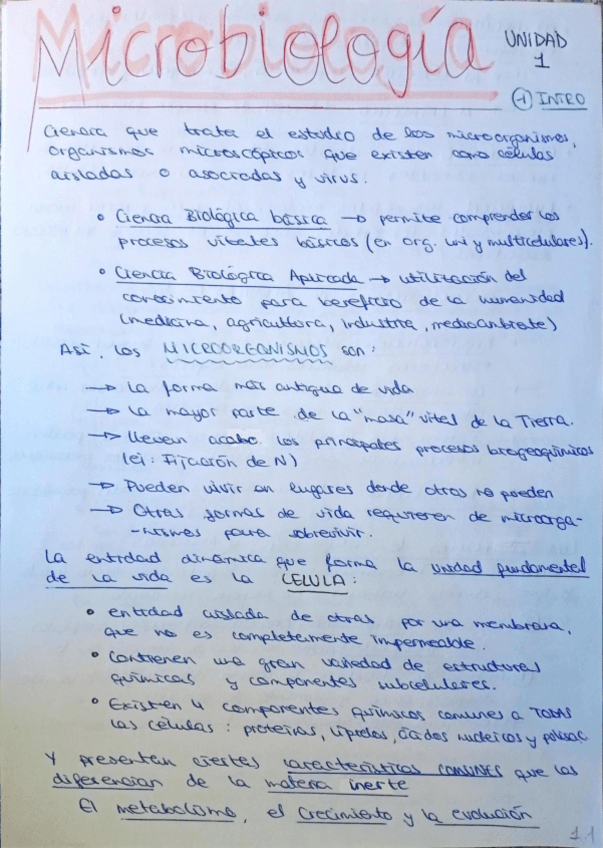 Microbiología UNIDAD 1
① INTRO
Ciencia que trata el estudio de los microorganismos,
organismos microscópicos que existen como células
aisladas o asociadas y virus.
• Ciencia Biológica básica → permite comprender los
procesos vitales básicos (en org. uni y multicelulares).
• Ciencia Biológica Aplicada → utilización del
conocimiento para beneficio de la humanidad
(medicina, agricultura, industria, medioambiente)
Así, los MICROORGNISMOS son:
→ La forma más antigua de vida
→ La mayor parte de la "masa" vital de la Tierra.
→ Llevan acabo los principales procesos biogeoquímicos
(ej: Fijación de N)
→ Pueden vivir en lugares donde otros no pueden
→ Otras formas de vida requieren de microorga-
-nismos para sobrevivir.
La entidad dinámica que forma la unidad fundamental
de la vida es la CELULA:
• entidad aislada de otras por una membrana,
que no es completamente impermeable.
• Contienen una gran variedad de estructuras
químicas y componentes subcelulares.
• Existen 4 componentes químicos comunes a TODAS
las células: proteínas, lípidos, ácidos nucleicos y polisac.
Y presentan ciertas características comunes que las
diferencian de la materia inerte
El metabolismo, el crecimiento y la evolución
1.1